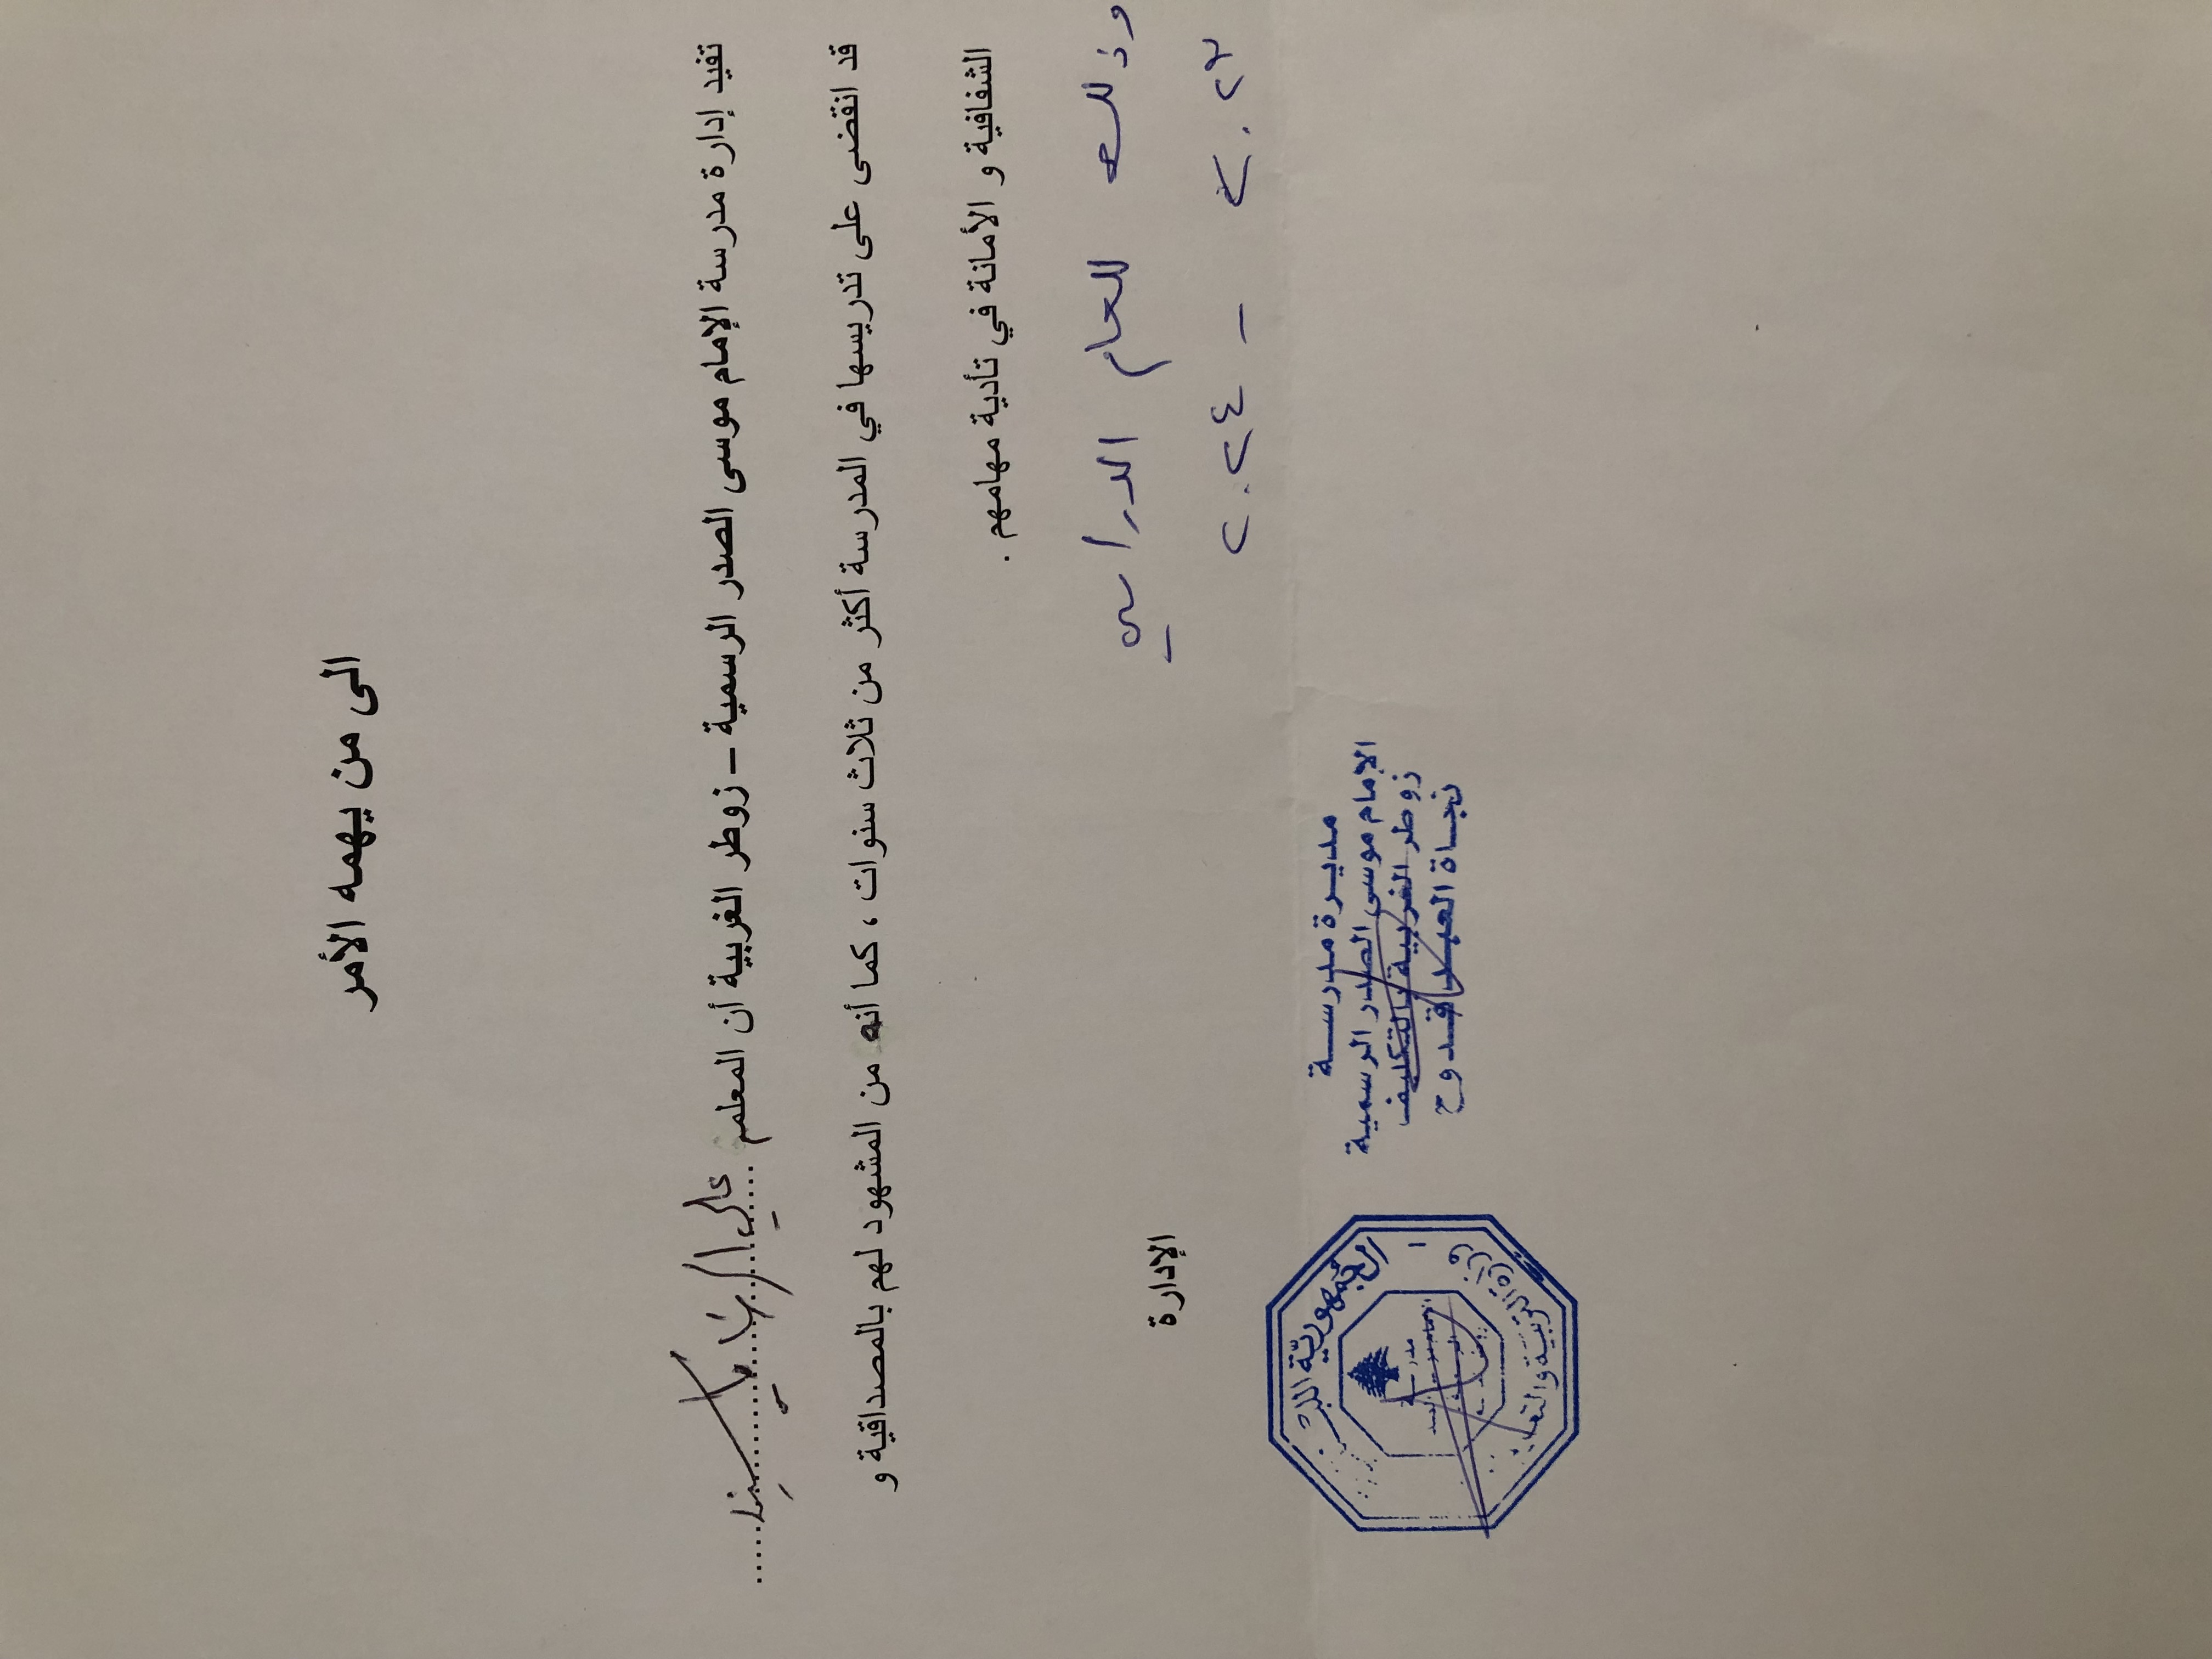 الى من يهمه الأمر
تفيد إدارة مدرسة الإمام موسى الصدر الرسمية – زوطر الغربية أن المعلم علي
قد انقضى على تدريسها في المدرسة أكثر من ثلاث سنوات ، كما أنه من المشهود لهم بالمصداقية و
الشفافية و الأمانة في تأدية مهامهم .
وذلك للعام الدراسي
٢٠٢٣ – ٢٠٢٤
الإدارة
مديرة مدرسة
الإمام موسى الصدر الرسمية
زوطر الغربية بالتكليف
نجاة العبد قدوح
الجمهورية اللبنانية
وزارة التربية والتعليم